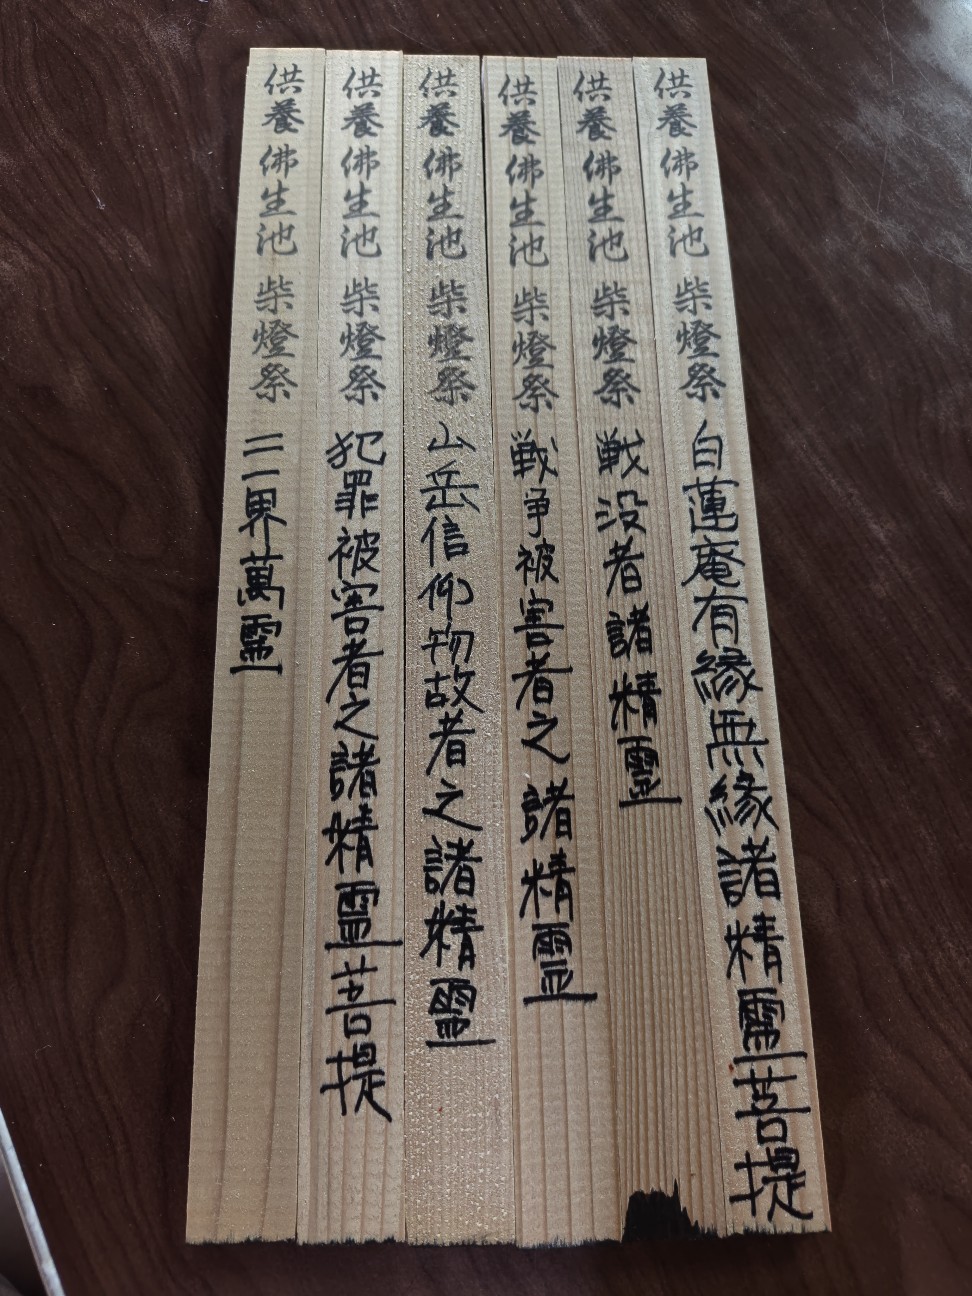 供養佛生池 柴燈祭 白蓮庵有縁無縁諸精霊菩提
供養佛生池 柴燈祭 戦没者諸精霊
供養佛生池 柴燈祭 戦争被害者之諸精霊
供養佛生池 柴燈祭 山岳信仰物故者之諸精霊
供養佛生池 柴燈祭 犯罪被害者之諸精霊菩提
供養佛生池 柴燈祭 三界萬霊